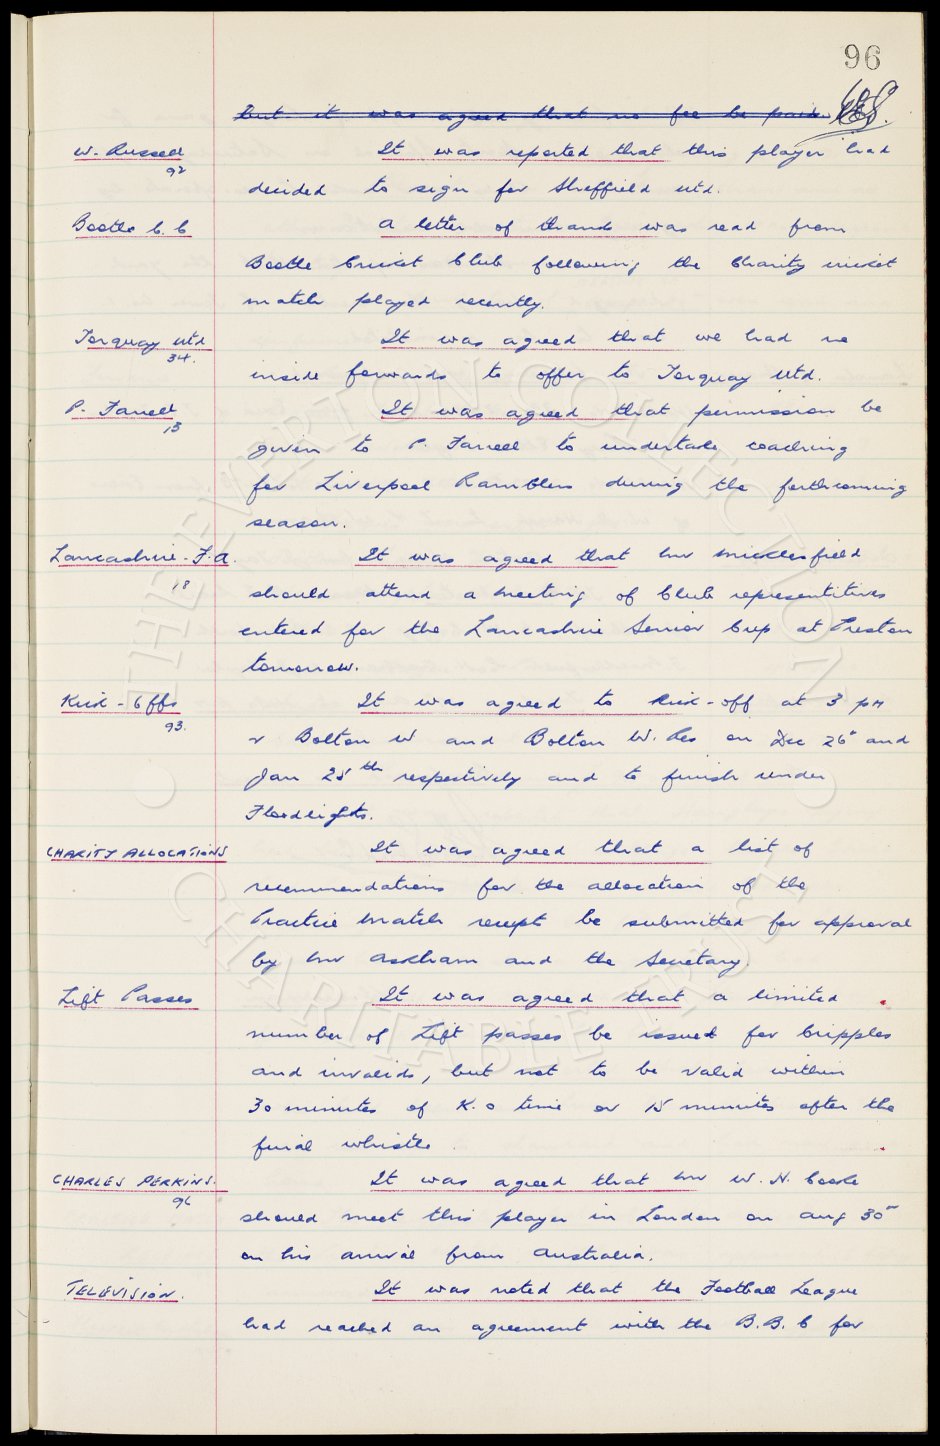 96
but it was agreed that no fee be paid.
W. Russell
92
It was reported that this player had
decided to sign for Sheffield Utd.
Bootle C. C
A letter of thanks was read from
Bootle Cricket Club following the Charity cricket
match played recently.
Torquay Utd
34.
It was agreed that we had no
inside forwards to offer to Torquay Utd.
P. Farrell
15
It was agreed that permission be
given to P. Farrell to undertake coaching
for Liverpool Ramblers during the forthcoming
season.
Lancashire F.A.
18
It was agreed that Mr Micklesfield
should attend a meeting of Club representitives
entered for the Lancashire Senior Cup at Preston
tomorrow.
Kick-Offs
93.
It was agreed to kick-off at 3 pm
v Bolton W and Bolton W. Res on Dec 26" and
Jan 25th respectively and to finish under
Floodlights.
CHARITY ALLOCATIONS
It was agreed that a list of
recommendations for the allocation of the
Practice Match receipt be submitted for approval
by Mr Askham and the Secretary
Lift Passes
It was agreed that a limited
number of Lift passes be issued for Cripples
and invalids, but not to be valid within
30 minutes of K.O time or 15 minutes after the
final whistle.
CHARLES PERKINS.
96
It was agreed that Mr W. H. Cooke
should meet this player in London on Aug 30"
on his arrival from Australia.
TELEVISION.
It was noted that the Football League
had reached an agreement with the B.B.C for
THE EVERTON COLLECTION
CHARITABLE TRUST